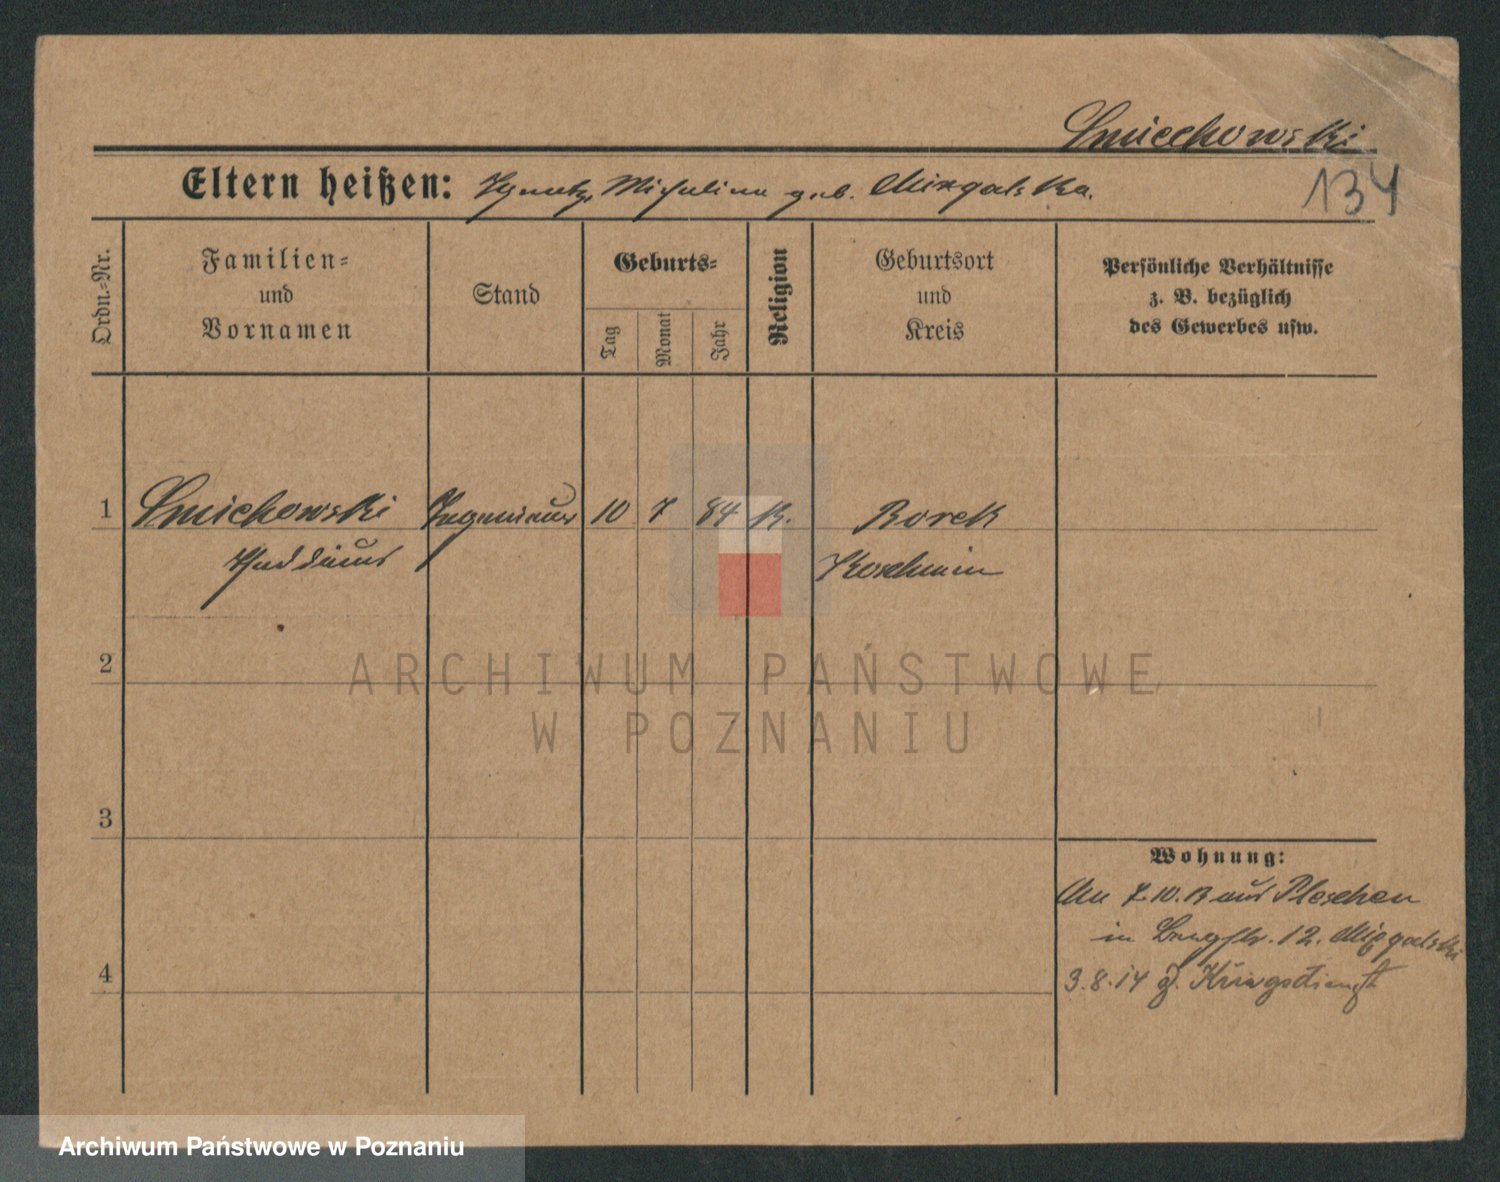 Smiechowski
134
Eltern heißen: Ignatz, Michalina geb. Mizgalska.
Ordn.-Nr.
Familien-
und
Vornamen
Stand
Geburts-
Tag
Monat
Jahr
Religion
Geburtsort
und
Kreis
Persönliche Verhältnisse
z. B. bezüglich
des Gewerbes usw.
1 Smichowski Ingenieur 10 7 84 K. Borek
Thaddäus Koschmin
2
ARCHIWUM PAŃSTWOWE
W POZNANIU
3
Wohnung:
An 7.10.13 aus Pleschen
in 12. Mizgalski
4
3.8.14 Kriegsdienst
Archiwum Państwowe w Poznaniu